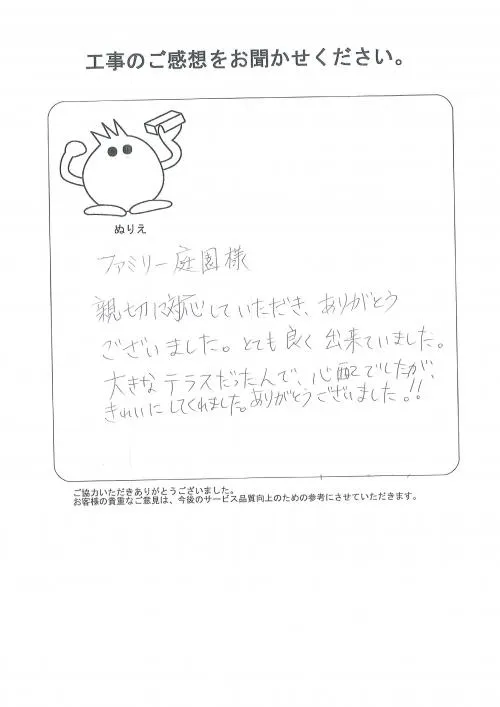 工事のご感想をお聞かせください。
ぬりえ
ファミリー庭園様
親切に対応していただき、ありがとう
ございました。とても良く出来ていました。
大きなテラスだったんで、心配でしたが、
きれいにしてくれました。ありがとうございました。!!
ご協力いただきありがとうございました。
お客様の貴重なご意見は、今後のサービス品質向上のための参考にさせていただきます。